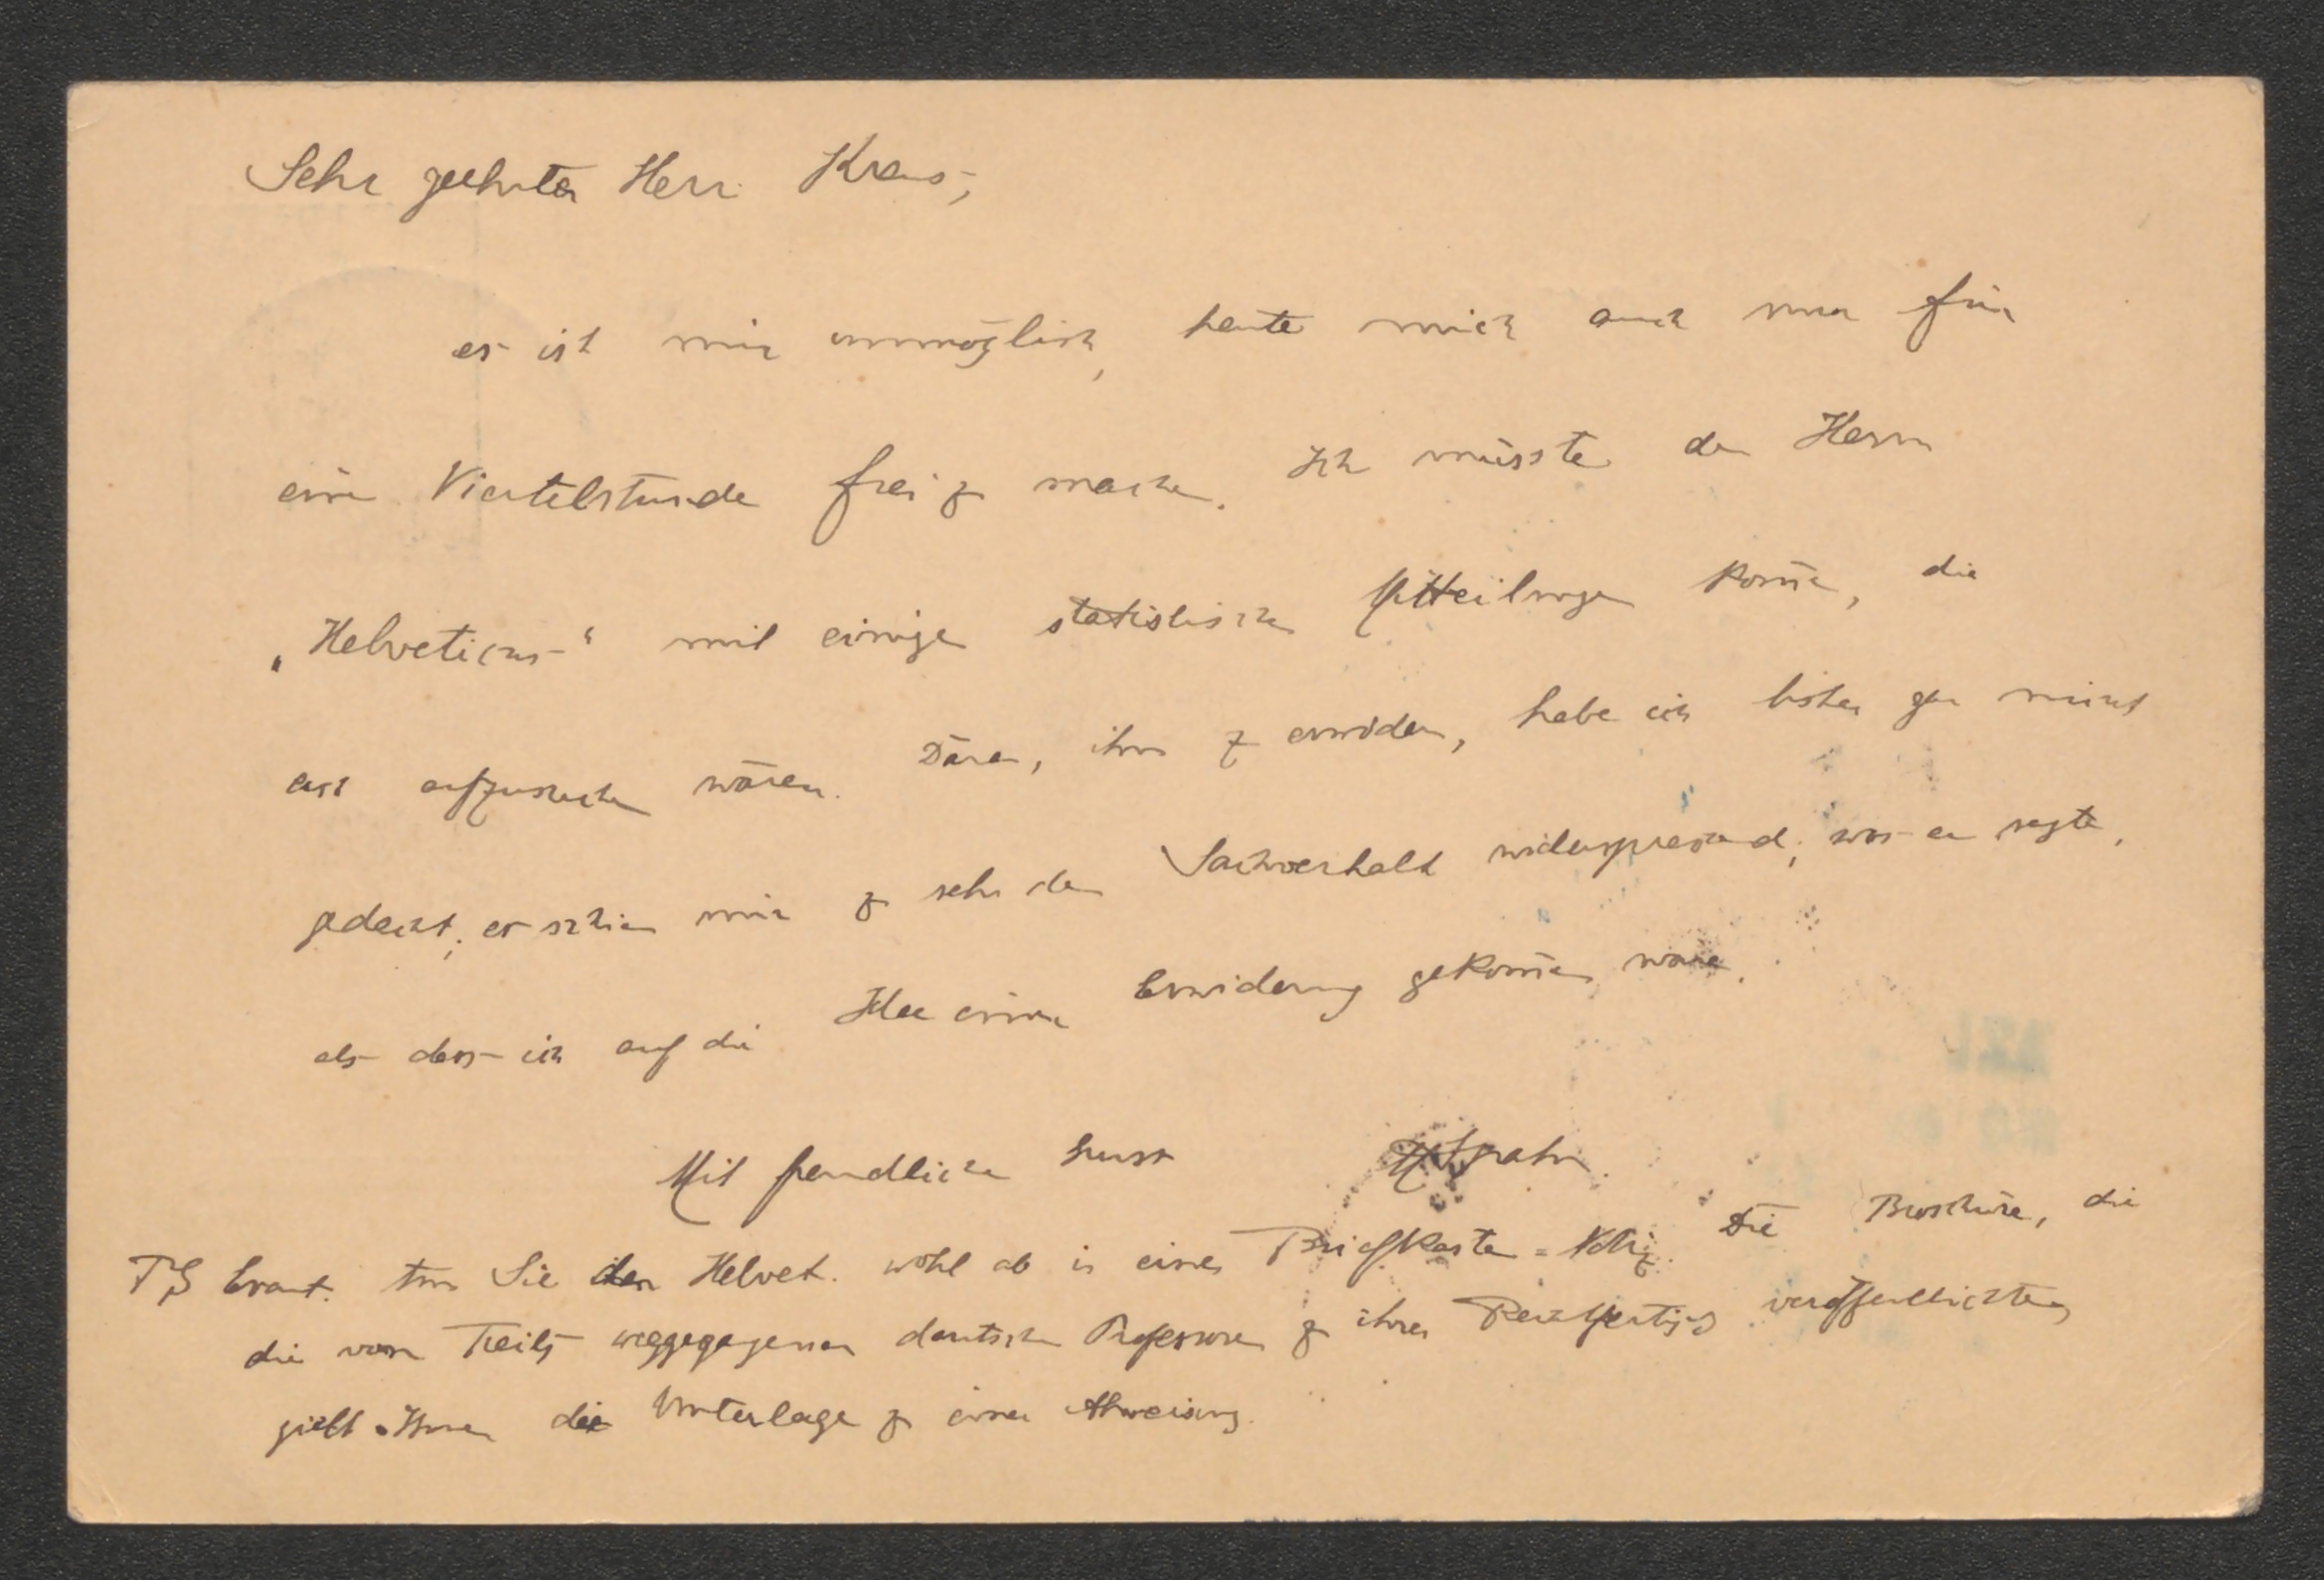 Sehr geehrter Herr Kraus,
es ist mir unmöglich, heute mich auch nur für
eine Viertelstunde frei zu machen. Ich müsste dem Herrn
„Helveticus" mit einigen statistischen Mitteilungen kom̄en, die
erst aufzusuchen wären. Daran, ihm zu erwidern, habe ich bisher gar nicht
gedacht; es schien mir zu sehr dem Sachverhalt widersprechend, was er sagte,
als dass ich auf die Idee einer Erwiderung gekom̄en wäre.
Mit freundlichem Gruss MSpahn.
PS Event. tun Sie den Helvet. wohl ab in einer Briefkasten=Notiz. Die Broschüre, die
die von Freibg weggegangenen deutschen Professoren zu ihrer Rechtfertigg veröffentlichten,
giebt Ihnen die Unterlage zu einer Abweisung.